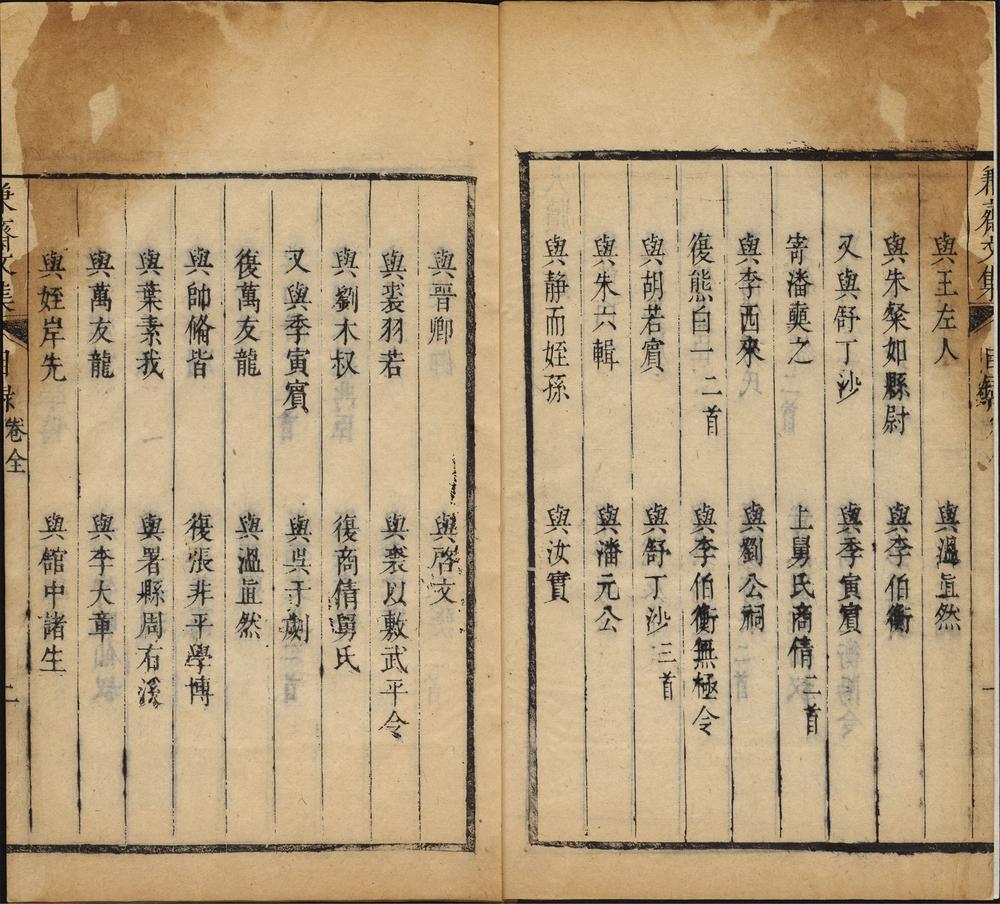 齋文集
與王左人 與溫直然
與朱棨如縣尉 與李伯衡
又與舒丁沙 與季寅賓
寄潘藇之 上舅氏商倩 二首
與李西來 與劉公祠
復熊自一 二首 與李伯衡無極令
與胡若賓 與舒丁沙 三首
與朱六輯 與潘元公
與静而姪孫 與汝實
與晉卿 與啓文
與裘羽若 與裘以敷武平令
與劉木叔 復商倩舅氏
又與季寅賓 與吳于劌
復萬友龍 與溫直然
與帥脩皆 復張非平學博
與葉素我 與署縣周右溪
與萬友龍 與李大章
與姪岸先 與館中諸生
齋文集 目錄 卷全 二